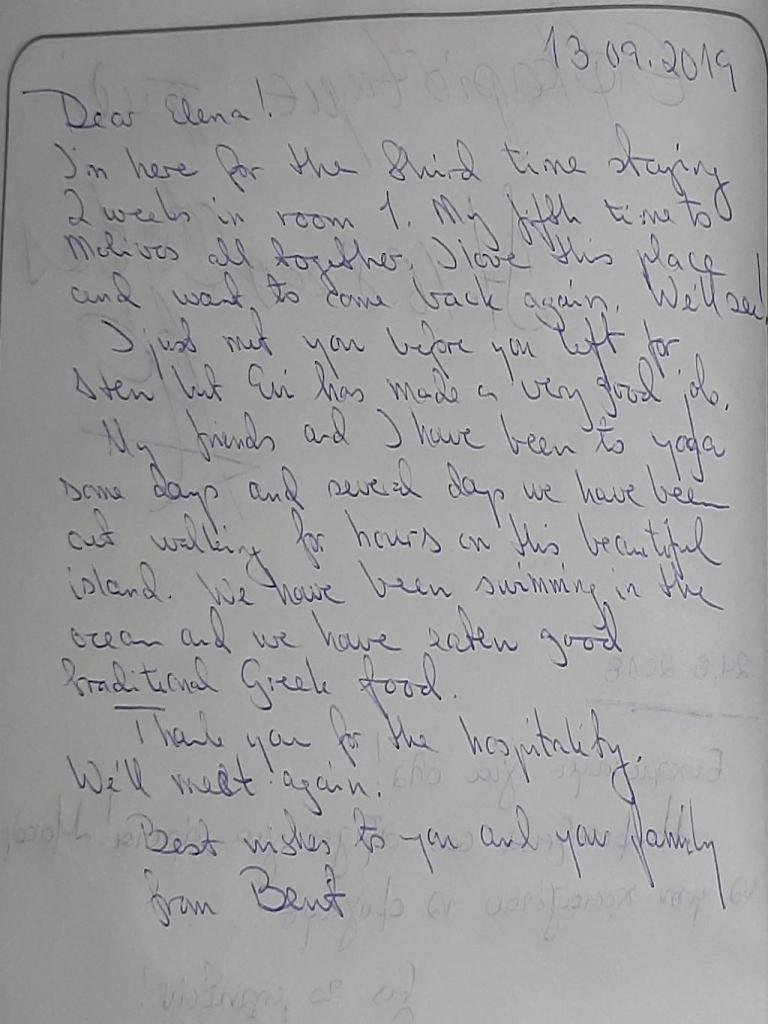 13.09.2019
Dear Elena!
I'm here for the third time staying
2 weeks in room 1. My fifth time to
Molivos all together. I love this place
and want to come back again. We'll see!
I just met you before you left for
but Evi has made a very good job.
My friends and I have been to yoga
some days and several days we have been
out walking for hours on this beautiful
island. We have been swimming in the
ocean and we have eaten good
traditional Greek food.
Thank you for the hospitality.
We'll meet again.
Best wishes to you and you family
from Bent